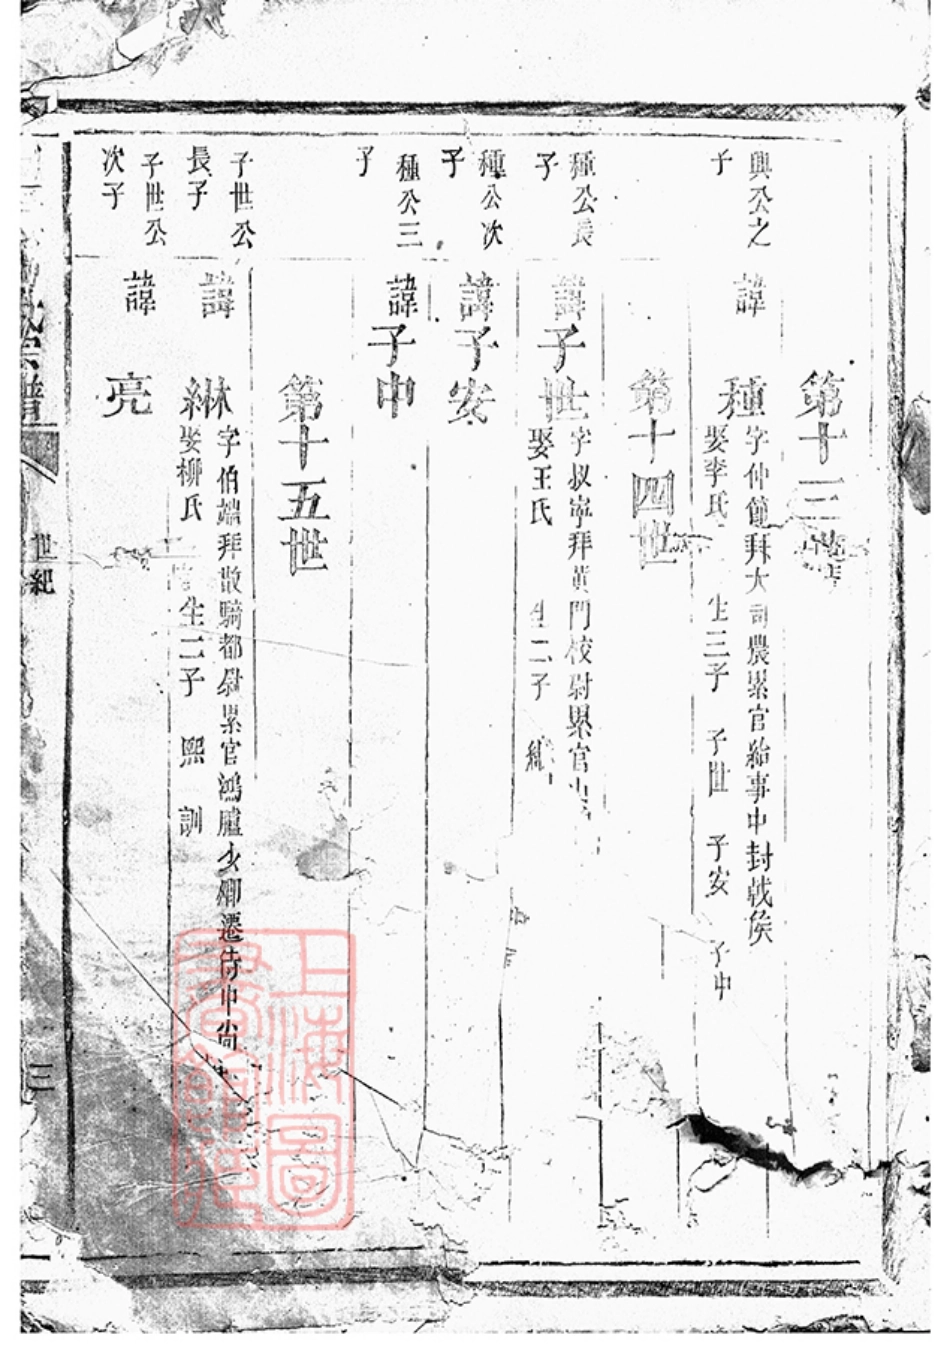 第十三世
興公之
子
諱
種
字仲節拜大司農累官給事中封戟侯
娶李氏 生三子 子世 子安 子中
第十四世
種公長
子
諱子世
字叔寧拜黃門校尉累官
娶王氏 生二子 綝
種公次
子
諱子安
種公三
子
諱子中
第十五世
子世公
長子
諱
綝
字伯端拜散騎都尉累官鴻臚少卿遷侍中尚
娶柳氏 生二子 熙 訓
子世公
次子
諱
亮
宗譜
世紀
三
上海圖
書館藏